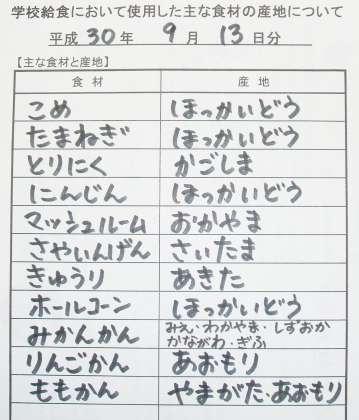 学校給食において使用した主な食材の産地について
平成 30 年 9 月 13 日分
【主な食材と産地】
食材 産地
こめ ほっかいどう
たまねぎ ほっかいどう
とりにく かごしま
にんじん ほっかいどう
マッシュルーム おかやま
さやいんげん さいたま
きゅうり あきた
ホールコーン ほっかいどう
みかんかん みえ・わかやま・しずおか
かながわ・ぎふ
りんごかん あおもり
ももかん やまがた・あおもり